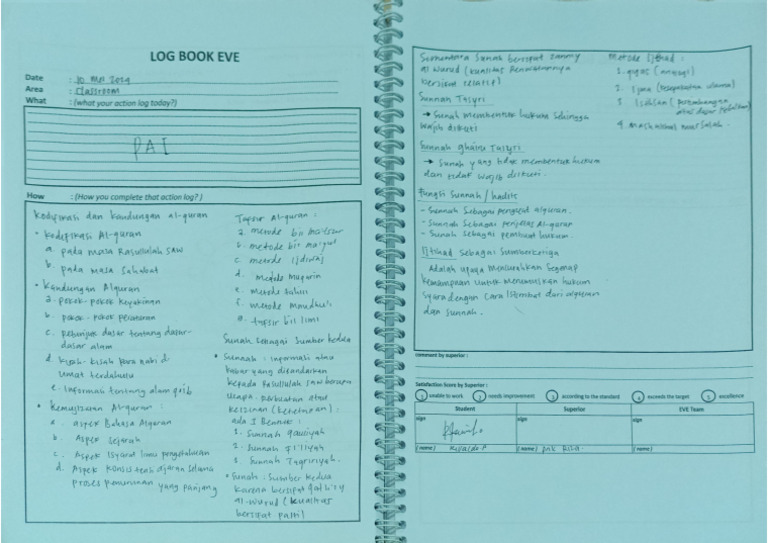 LOG BOOK EVE
Date : 10 Mei 2024
Area : Classroom
What : (what your action log today?)
PAI
How : (How you complete that action log? )
Kodifikasi dan kandungan al-quran
• Kodifikasi Al-quran
a. pada masa Rasulullah SAW
b. pada masa Sahabat
• Kandungan Alquran
a. pokok-pokok keyakinan
b. pokok-pokok peraturan
c. dasar tentang dasar-
dasar alam
d. kisah-kisah para nabi &
umat terdahulu
e. informasi tentang alam goib
• Kemujizatan Al-quran :
a. aspek Bahasa Alquran
b. Aspek Sejarah
c. Aspek Isyarat ilmu pengetahuan
d. Aspek ajaran selama
proses penurunan yang panjang
Tafsir Al-quran :
a. metode bil
b. metode bil
c. metode ijdiwaj
d. Metode Muqarin
e. Metode tahlili
f. metode Maudhu'i
g. tafsir bil ilmi
Sunah Sebagai Sumber kedua
• Sunnah : informasi atau
kabar yang disandarkan
kepada Rasulullah SAW berupa
ucapan, perbuatan atau
(ketetapan) :
ada 3 Bentuk :
1. Sunnah qauliyah
2. Sunnah fi'liyah
3. Sunnah Taqririyah.
• Sunah : Sumber kedua
karena bersifat
al-wurud (kualitas
bersifat pasti)
Sunah bersifat zanny
al wurud (kualitas
bersifat relatif)
Sunnah Tasyri
→ Sunah membentuk hukum sehingga
wajib diikuti
Sunnah ghairu Tasyri
→ Sunah yang tidak membentuk hukum
dan tidak wajib diikuti.
Fungsi Sunnah / hadis
- Sunnah Sebagai penguat alquran.
- Sunnah Sebagai penjelas Al-quran
- Sunah Sebagai pembuat hukum.
Ijtihad Sebagai Sumber ketiga
Adalah upaya mencurahkan segenap
kemampuan untuk merumuskan hukum
Syara dengan cara istinbat dari alquran
dan sunnah.
Metode ijtihad :
1. qiyas (analogi)
2. Ijma (kesepakatan ulama)
3. Istihsan (pertimbangan
atas dasar kebaikan)
4. Mashlahah mursalah.
comment by superior :
Satisfaction Score by Superior :
1 unable to work 2 needs improvement 3 according to the standard 4 exceeds the target 5 excellence
Student Superior EVE Team
sign sign sign
(name) (name) (name)